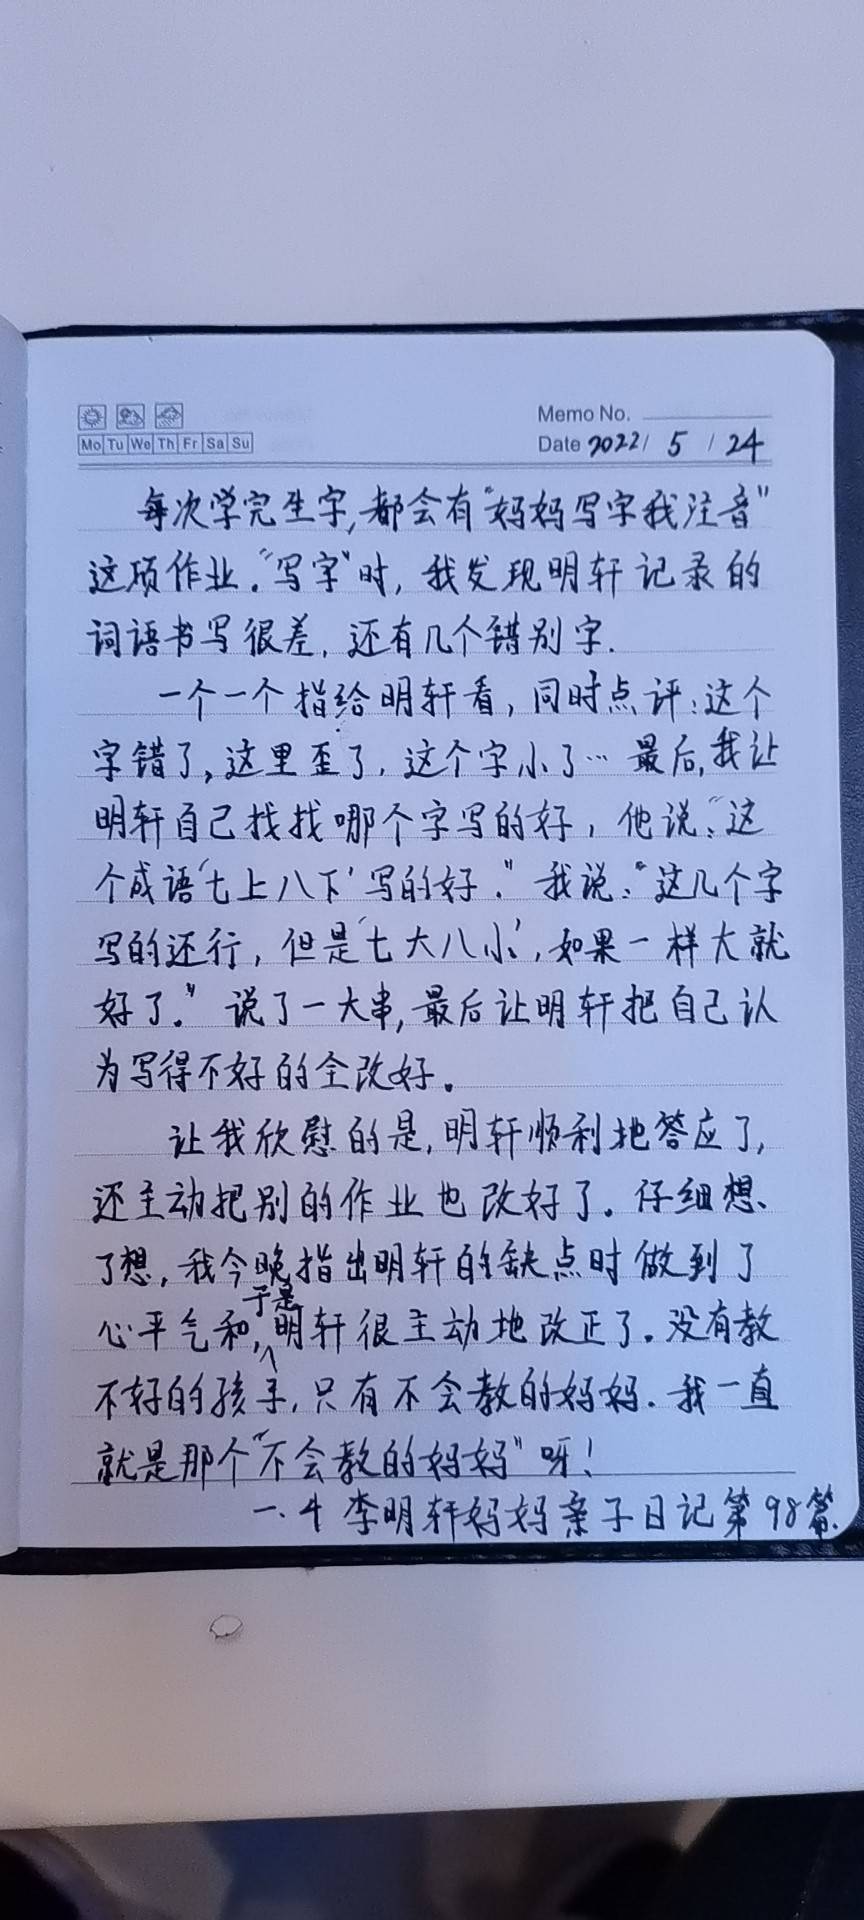 Memo No.
Mo Tu We Th Fr Sa Su
Date 2022/ 5 / 24
每次学完生字,都会有“妈妈写字我注音”
这项作业.“写字”时,我发现明轩记录的
词语书写很差,还有几个错别字.
一个一个指给明轩看,同时点评:这个
字错了,这里歪了,这个字小了…最后,我让
明轩自己找找哪个字写的好,他说:“这
个成语‘七上八下’写的好.”我说:“这几个字
写的还行,但是‘七大八小’,如果一样大就
好了.”说了一大串,最后让明轩把自己认
为写得不好的全改好。
让我欣慰的是,明轩顺利地答应了,
还主动把别的作业也改好了。仔细想、
了想,我今晚指出明轩的缺点时做到了
心平气和,于是明轩很主动地改正了.没有教
不好的孩子,只有不会教的妈妈.我一直
就是那个“不会教的妈妈”呀!
一.4 李明轩妈妈亲子日记第98篇.